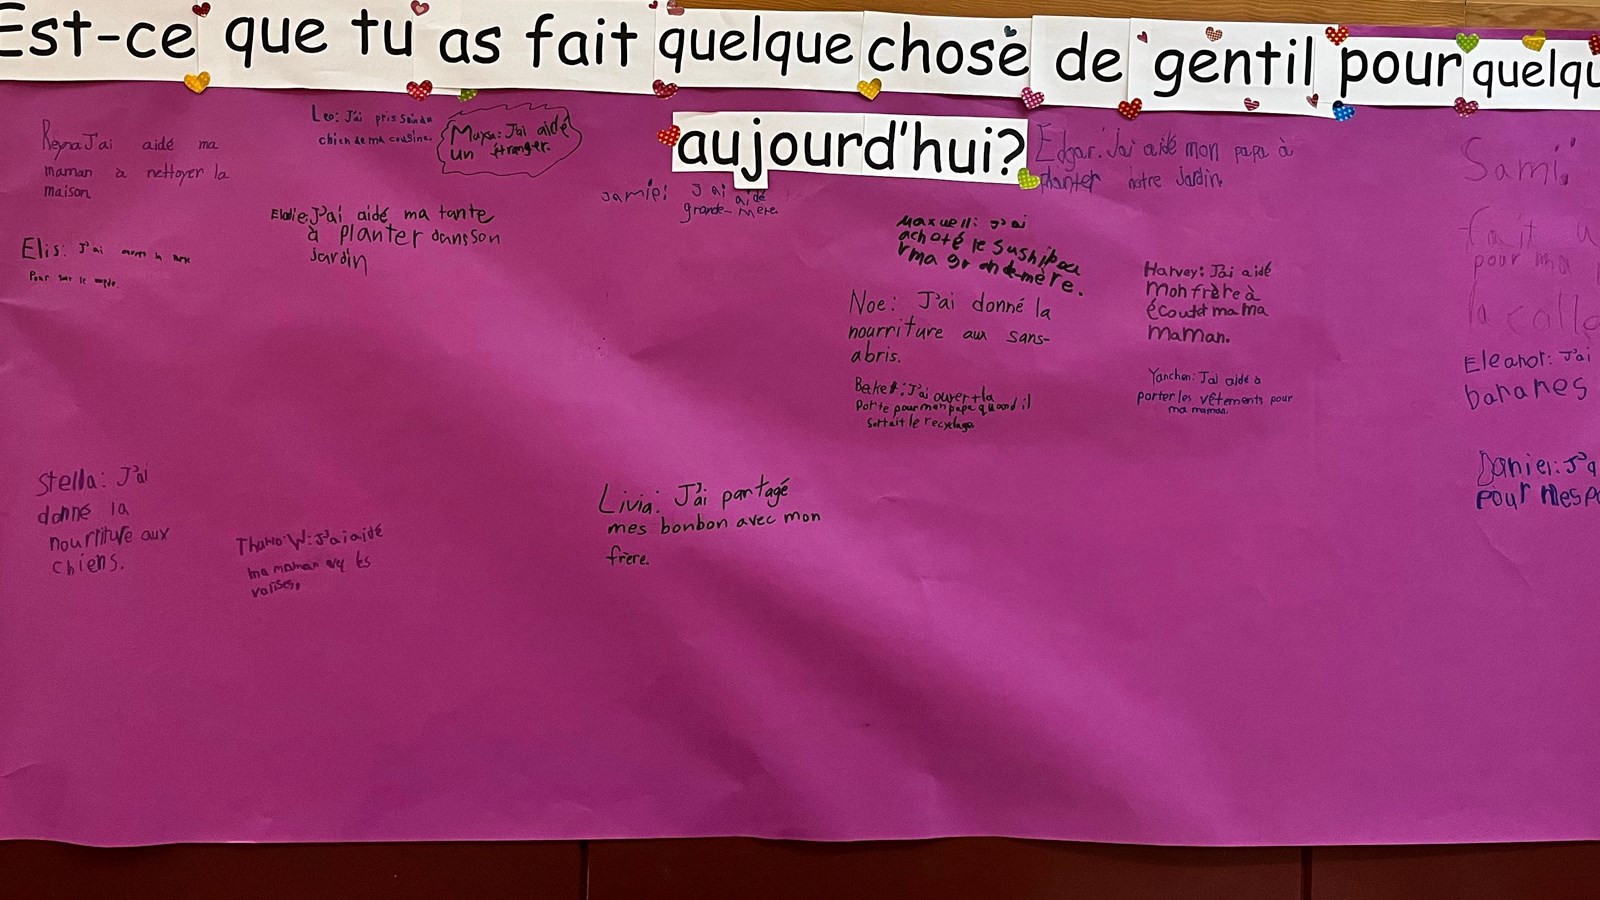 Est-ce que tu as fait quelque chose de gentil pour quelqu
aujourd'hui?
Reyna J'ai aidé ma
maman à nettoyer la
maison
Leo: J'ai pris soin du
chien de ma cousine.
Maya: J'ai aidé
un étranger.
Elis: J'ai
Pour sur le
Elodie: J'ai aidé ma tante
à planter dans son
jardin
Jamie: J'ai aidé
grande-mère.
Edgar: J'ai aidé mon papa à
planter notre Jardin.
Maxwell: J'ai
achoté le sushi pou
r ma grande-mère.
Noe: J'ai donné la
nourriture aux sans-
abris.
Beket: J'ai ouvert la
Porte pour mon papa quand il
Sortait le recyclage.
Harvey: J'ai aidé
mon frère à
ma ma
maman.
Yanchen: J'ai aidé à
porter les vêtements pour
ma maman.
Sami:
fait u
pour ma
la colla
Eleanor: J'ai
bananes
Daniel: J'a
pour mes pa
Stella: J'ai
donné la
nourriture aux
chiens.
W: J'ai aidé
ma maman les
valises.
Livia: J'ai partagé
mes bonbon avec mon
frère.